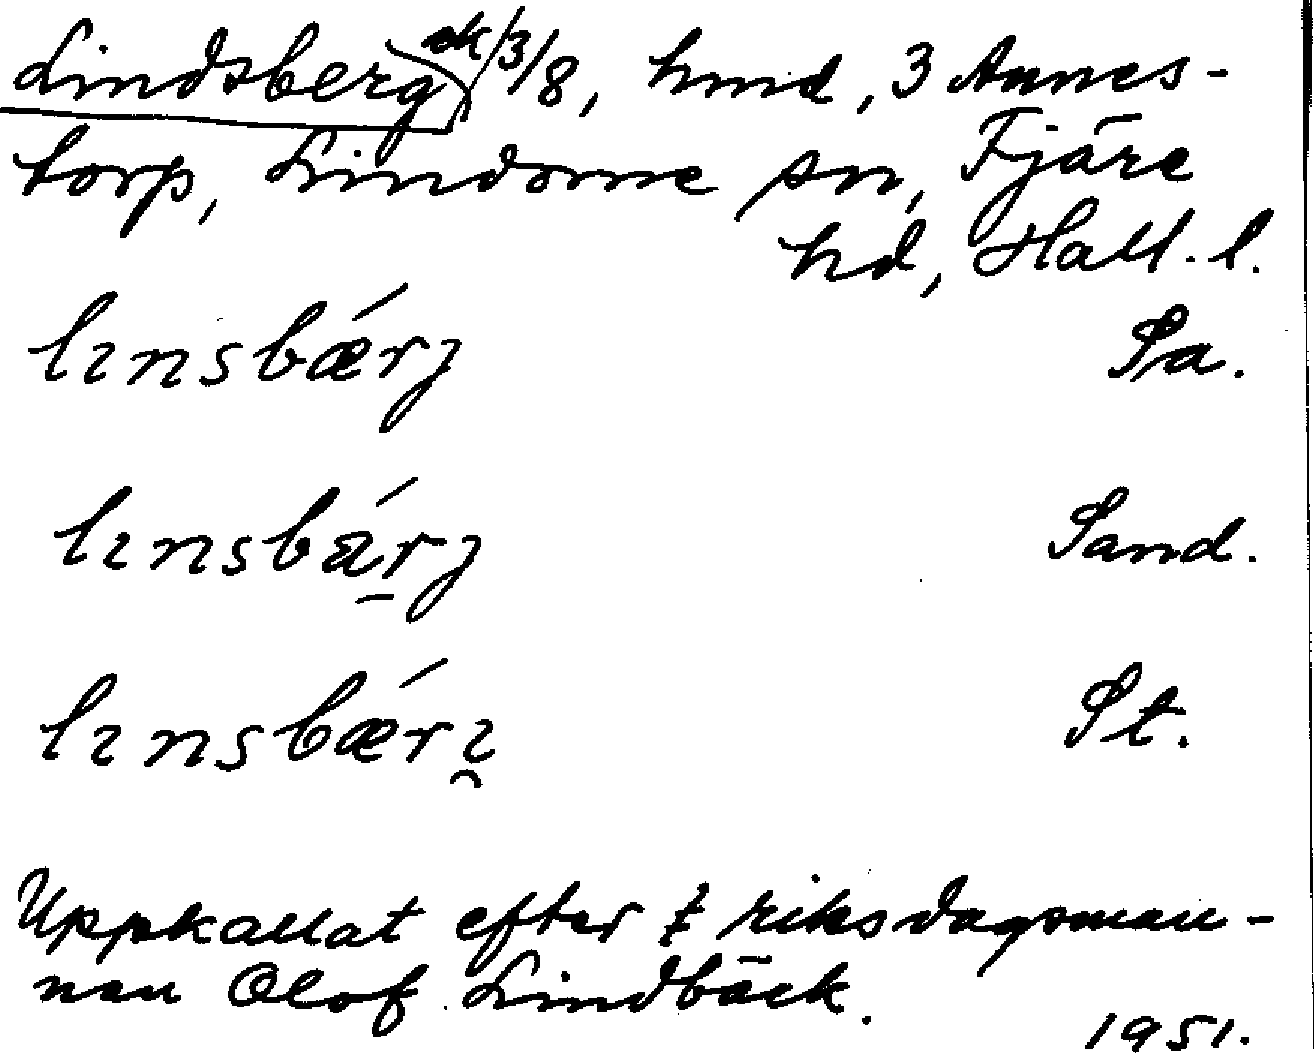 Lindsberg ek/3/8, hmd, 3 Annes-
torp, Lindome sn, Fjäre
hd, Hall. l.
lınsbǽrj Sa.
lınsbä́rj Sand.
lınsbǽrı̯ St.
Uppkallat efter † riksdagsman-
nen Olof Lindbäck.
1951.